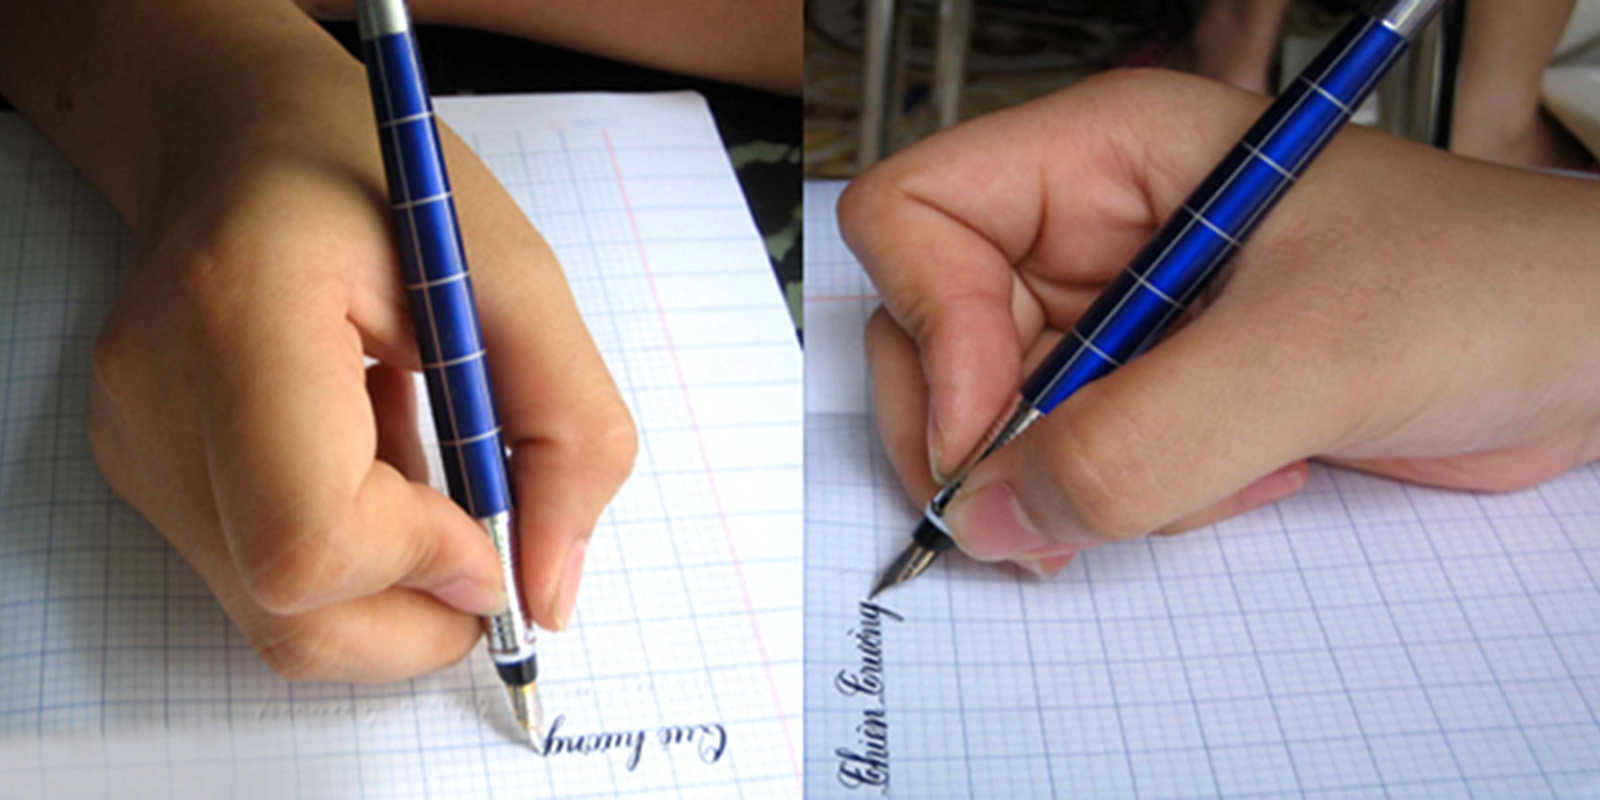 Quê hương
Thiên Trường